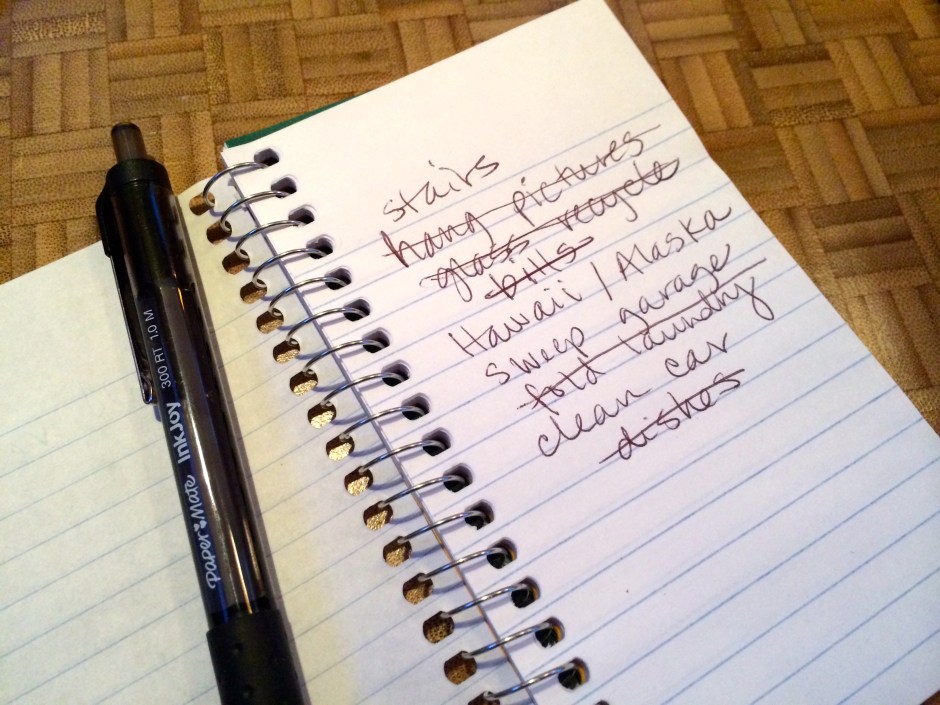 stairs
hang pictures
glass recycle
bills
Hawaii / Alaska
sweep garage
fold laundry
clean car
dishes
Paper Mate InkJoy 300 RT 1.0 M